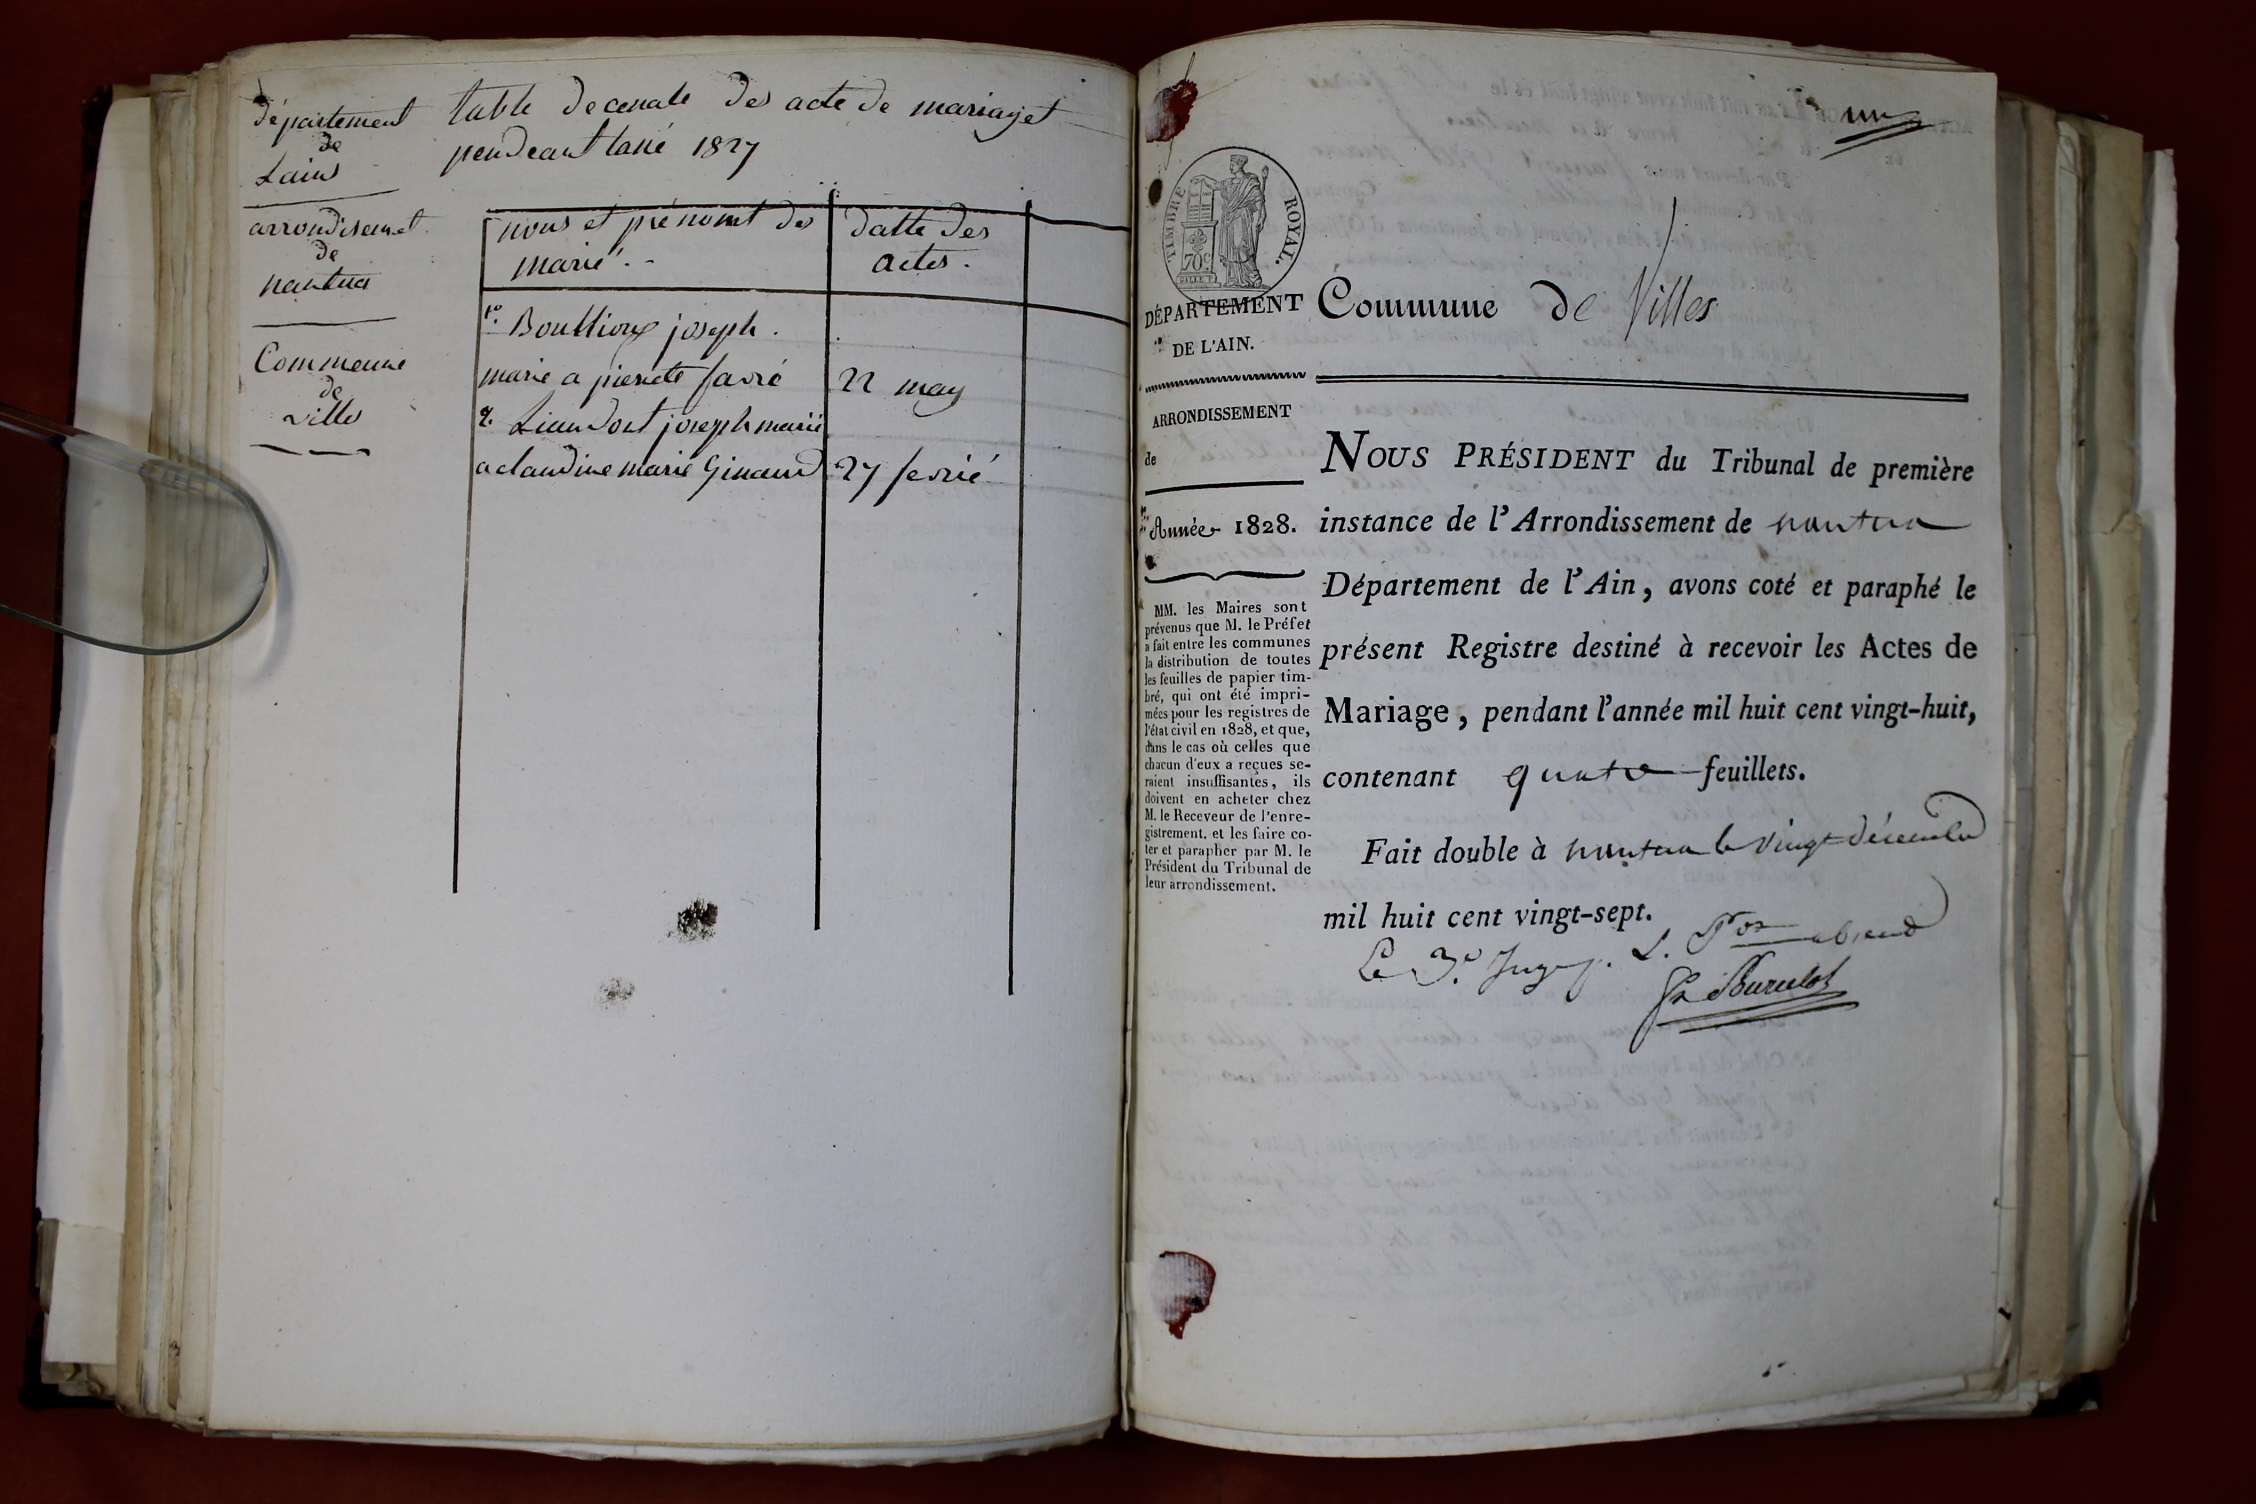 département
de
Lain
arrondisemet
de
nantua
Commenne
de
ville
table decenale des acte de mariajet
pendeant lané 1827
nous et prénomt des
marié
datte des
actes.
1º. Boullioux joseph.
marie a pierrete favré 22 may
2. joseph marié
a claudine marie Giraud 27 fevrié
un
TIMBRE ROYAL.
70 C
DÉPARTEMENT
DE L'AIN.
ARRONDISSEMENT
de
Année 1828.
MM. les Maires sont
prévenus que M. le Préfet
a fait entre les communes
la distribution de toutes
les feuilles de papier tim-
bré, qui ont été impri-
mées pour les registres de
l'état civil en 1828, et que,
dans le cas où celles que
chacun d'eux a reçues se-
raient insuffisantes, ils
doivent en acheter chez
M. le Receveur de l'enre-
gistrement, et les faire co-
ter et parapher par M. le
Président du Tribunal de
leur arrondissement.
Commune de Villes
NOUS PRÉSIDENT du Tribunal de première
instance de l'Arrondissement de nantua
Département de l'Ain, avons coté et paraphé le
présent Registre destiné à recevoir les Actes de
Mariage, pendant l'année mil huit cent vingt-huit,
contenant quatre feuillets.
Fait double à nantua le vingt décembre
mil huit cent vingt-sept.
Le 3e. Juge